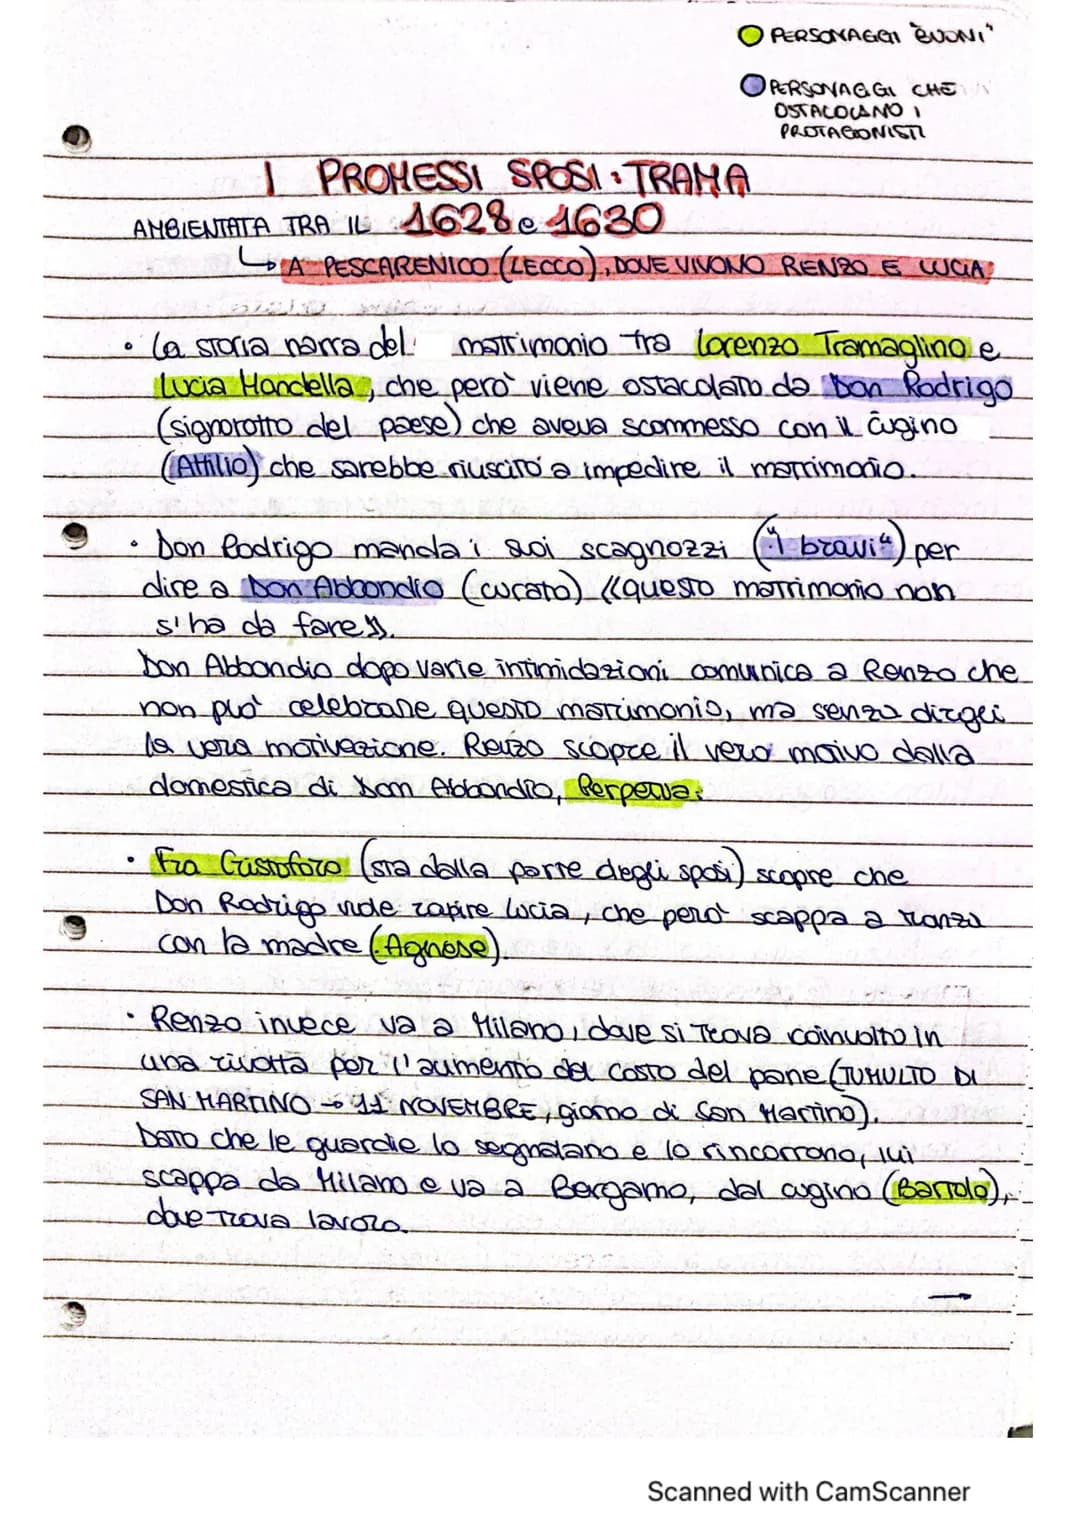 PERSONAGGI "BUONI"
PERSONAGGI CHE
OSTACOLANO I
PROTAGONISTI
I PROMESSI SPOSI: TRAMA
AMBIENTATA TRA IL 1628 e 1630
↳ A PESCARENICO (LECCO), DOVE VIVONO RENZO E LUCIA
• La storia narra del matrimonio tra Lorenzo Tramaglino e
Lucia Mondella, che però viene ostacolato da Don Rodrigo
(signorotto del paese) che aveva scommesso con il cugino
(Attilio) che sarebbe riuscito a impedire il matrimonio.
• Don Rodrigo manda i suoi scagnozzi ("i bravi") per
dire a Don Abbondio (curato) «questo matrimonio non
s'ha da fare».
Don Abbondio dopo varie intimidazioni comunica a Renzo che
non può celebrare questo matrimonio, ma senza dirgli
la vera motivazione. Renzo scopre il vero motivo dalla
domestica di Don Abbondio, Perpetua.
• Fra Cristoforo (sta dalla parte degli sposi) scopre che
Don Rodrigo vuole rapire Lucia, che però scappa a Monza
con la madre (Agnese).
• Renzo invece va a Milano, dove si trova coinvolto in
una rivolta per l'aumento del costo del pane (TUMULTO DI
SAN MARTINO → 11 NOVEMBRE, giorno di San Martino).
Dato che le guardie lo segnalano e lo rincorrono, lui
scappa da Milano e va a Bergamo, dal cugino (Bartolo),
dove trova lavoro.
→
Scanned with CamScanner